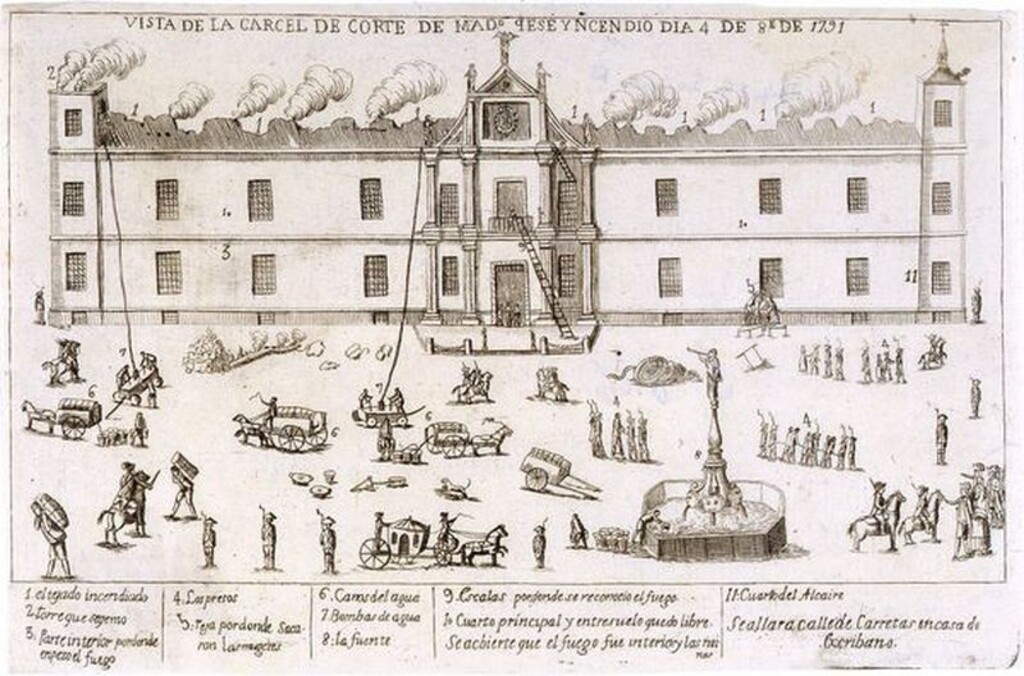 VISTA DE LA CARCEL DE CORTE DE MADº. QESE YNCENDIO DIA 4 DE 8ᴱ DE 1791
2
1 1 1 1 1 1 1 1
10 10
3
11
7 6 6 7 6 4
8
1. el tejado incendiado
2 torre que sepemo
3. Parte interior pordonde
enpezo el fuego
4. Los presos
5. Reja por donde Saca-
ron las mugeres
6. Carros del agua
7. Bombas de agua
8. la fuente
9. Escalas por donde se reconocio el fuego
10 Cuarto principal y entresuelo quedo libre.
Se acbierte que el fuego fue interior y las
11. Cuarto del Alcaire
Seallara calle de Carretas en casa de
Escribano.